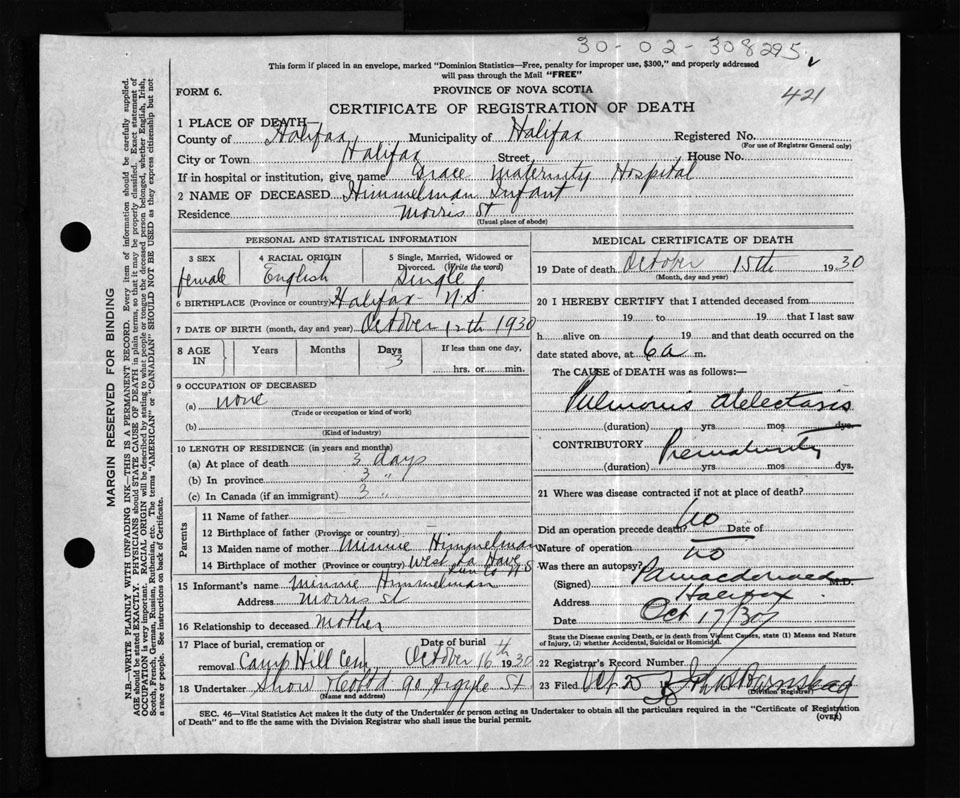 30-02-308295
This form if placed in an envelope, marked "Dominion Statistics—Free, penalty for improper use, $300," and properly addressed
will pass through the Mail "FREE"
FORM 6.
PROVINCE OF NOVA SCOTIA
421
CERTIFICATE OF REGISTRATION OF DEATH
1 PLACE OF DEATH—
County of Halifax Municipality of Halifax Registered No.
(For use of Registrar General only)
City or Town Halifax Street House No.
If in hospital or institution, give name Grace Maternity Hospital
2 NAME OF DECEASED Himmelman Infant
Residence Morris St
(Usual place of abode)
PERSONAL AND STATISTICAL INFORMATION
3 SEX 4 RACIAL ORIGIN 5 Single, Married, Widowed or
Divorced. (Write the word)
female English Single
6 BIRTHPLACE (Province or country) Halifax N.S
7 DATE OF BIRTH (month, day and year) October 12th 1930
8 AGE IN Years Months Days If less than one day,
3 hrs. or min.
9 OCCUPATION OF DECEASED
(a) none
(Trade or occupation or kind of work)
(b)
(Kind of industry)
10 LENGTH OF RESIDENCE (in years and months)
(a) At place of death 3 days
(b) In province 3 "
(c) In Canada (if an immigrant) 3 "
Parents
11 Name of father
12 Birthplace of father (Province or country)
13 Maiden name of mother Minnie Himmelman
14 Birthplace of mother (Province or country) West La Have
Lun Co N.S
15 Informant's name Minnie Himmelman
Address Morris St
16 Relationship to deceased Mother
17 Place of burial, cremation or Date of burial
removal Camp Hill Cem October 16th 1930
18 Undertaker Snow & Co Ltd 90 Argyle St
(Name and address)
MEDICAL CERTIFICATE OF DEATH
19 Date of death October 15th 1930
(Month, day and year)
20 I HEREBY CERTIFY that I attended deceased from
19 to 19 that I last saw
h alive on 19 and that death occurred on the
date stated above, at 6 a m.
The CAUSE of DEATH was as follows:—
Pulmonis Atelectasis
(duration) yrs mos dys.
CONTRIBUTORY Prematurity
(duration) yrs. mos dys.
21 Where was disease contracted if not at place of death?
Did an operation precede death? no Date of
Nature of operation
Was there an autopsy? no
(Signed) M.D.
Address Halifax
Date Oct 17/30
State the Disease causing Death, or in death from Violent Causes, state (1) Means and Nature
of Injury, (2) whether Accidental, Suicidal or Homicidal.
22 Registrar's Record Number
23 Filed Oct 25 30
(Division Registrar)
SEC. 46—Vital Statistics Act makes it the duty of the Undertaker or person acting as Undertaker to obtain all the particulars required in the "Certificate of Registration
of Death" and to file the same with the Division Registrar who shall issue the burial permit.
(OVER)
MARGIN RESERVED FOR BINDING
N.B.—WRITE PLAINLY WITH UNFADING INK—THIS IS A PERMANENT RECORD. Every item of information should be carefully supplied.
AGE should be stated EXACTLY. PHYSICIANS should STATE CAUSE OF DEATH in plain terms, so that it may be properly classified. Exact statement of
OCCUPATION is very important. RACIAL ORIGIN will be described by stating to what people or tongue the deceased person belonged, whether English, Irish,
Scotch, French, German, Russian, Ruthenian, etc. The terms "AMERICAN" or "CANADIAN" SHOULD NOT BE USED as they express citizenship but not
a race or people. See instructions on back of Certificate.